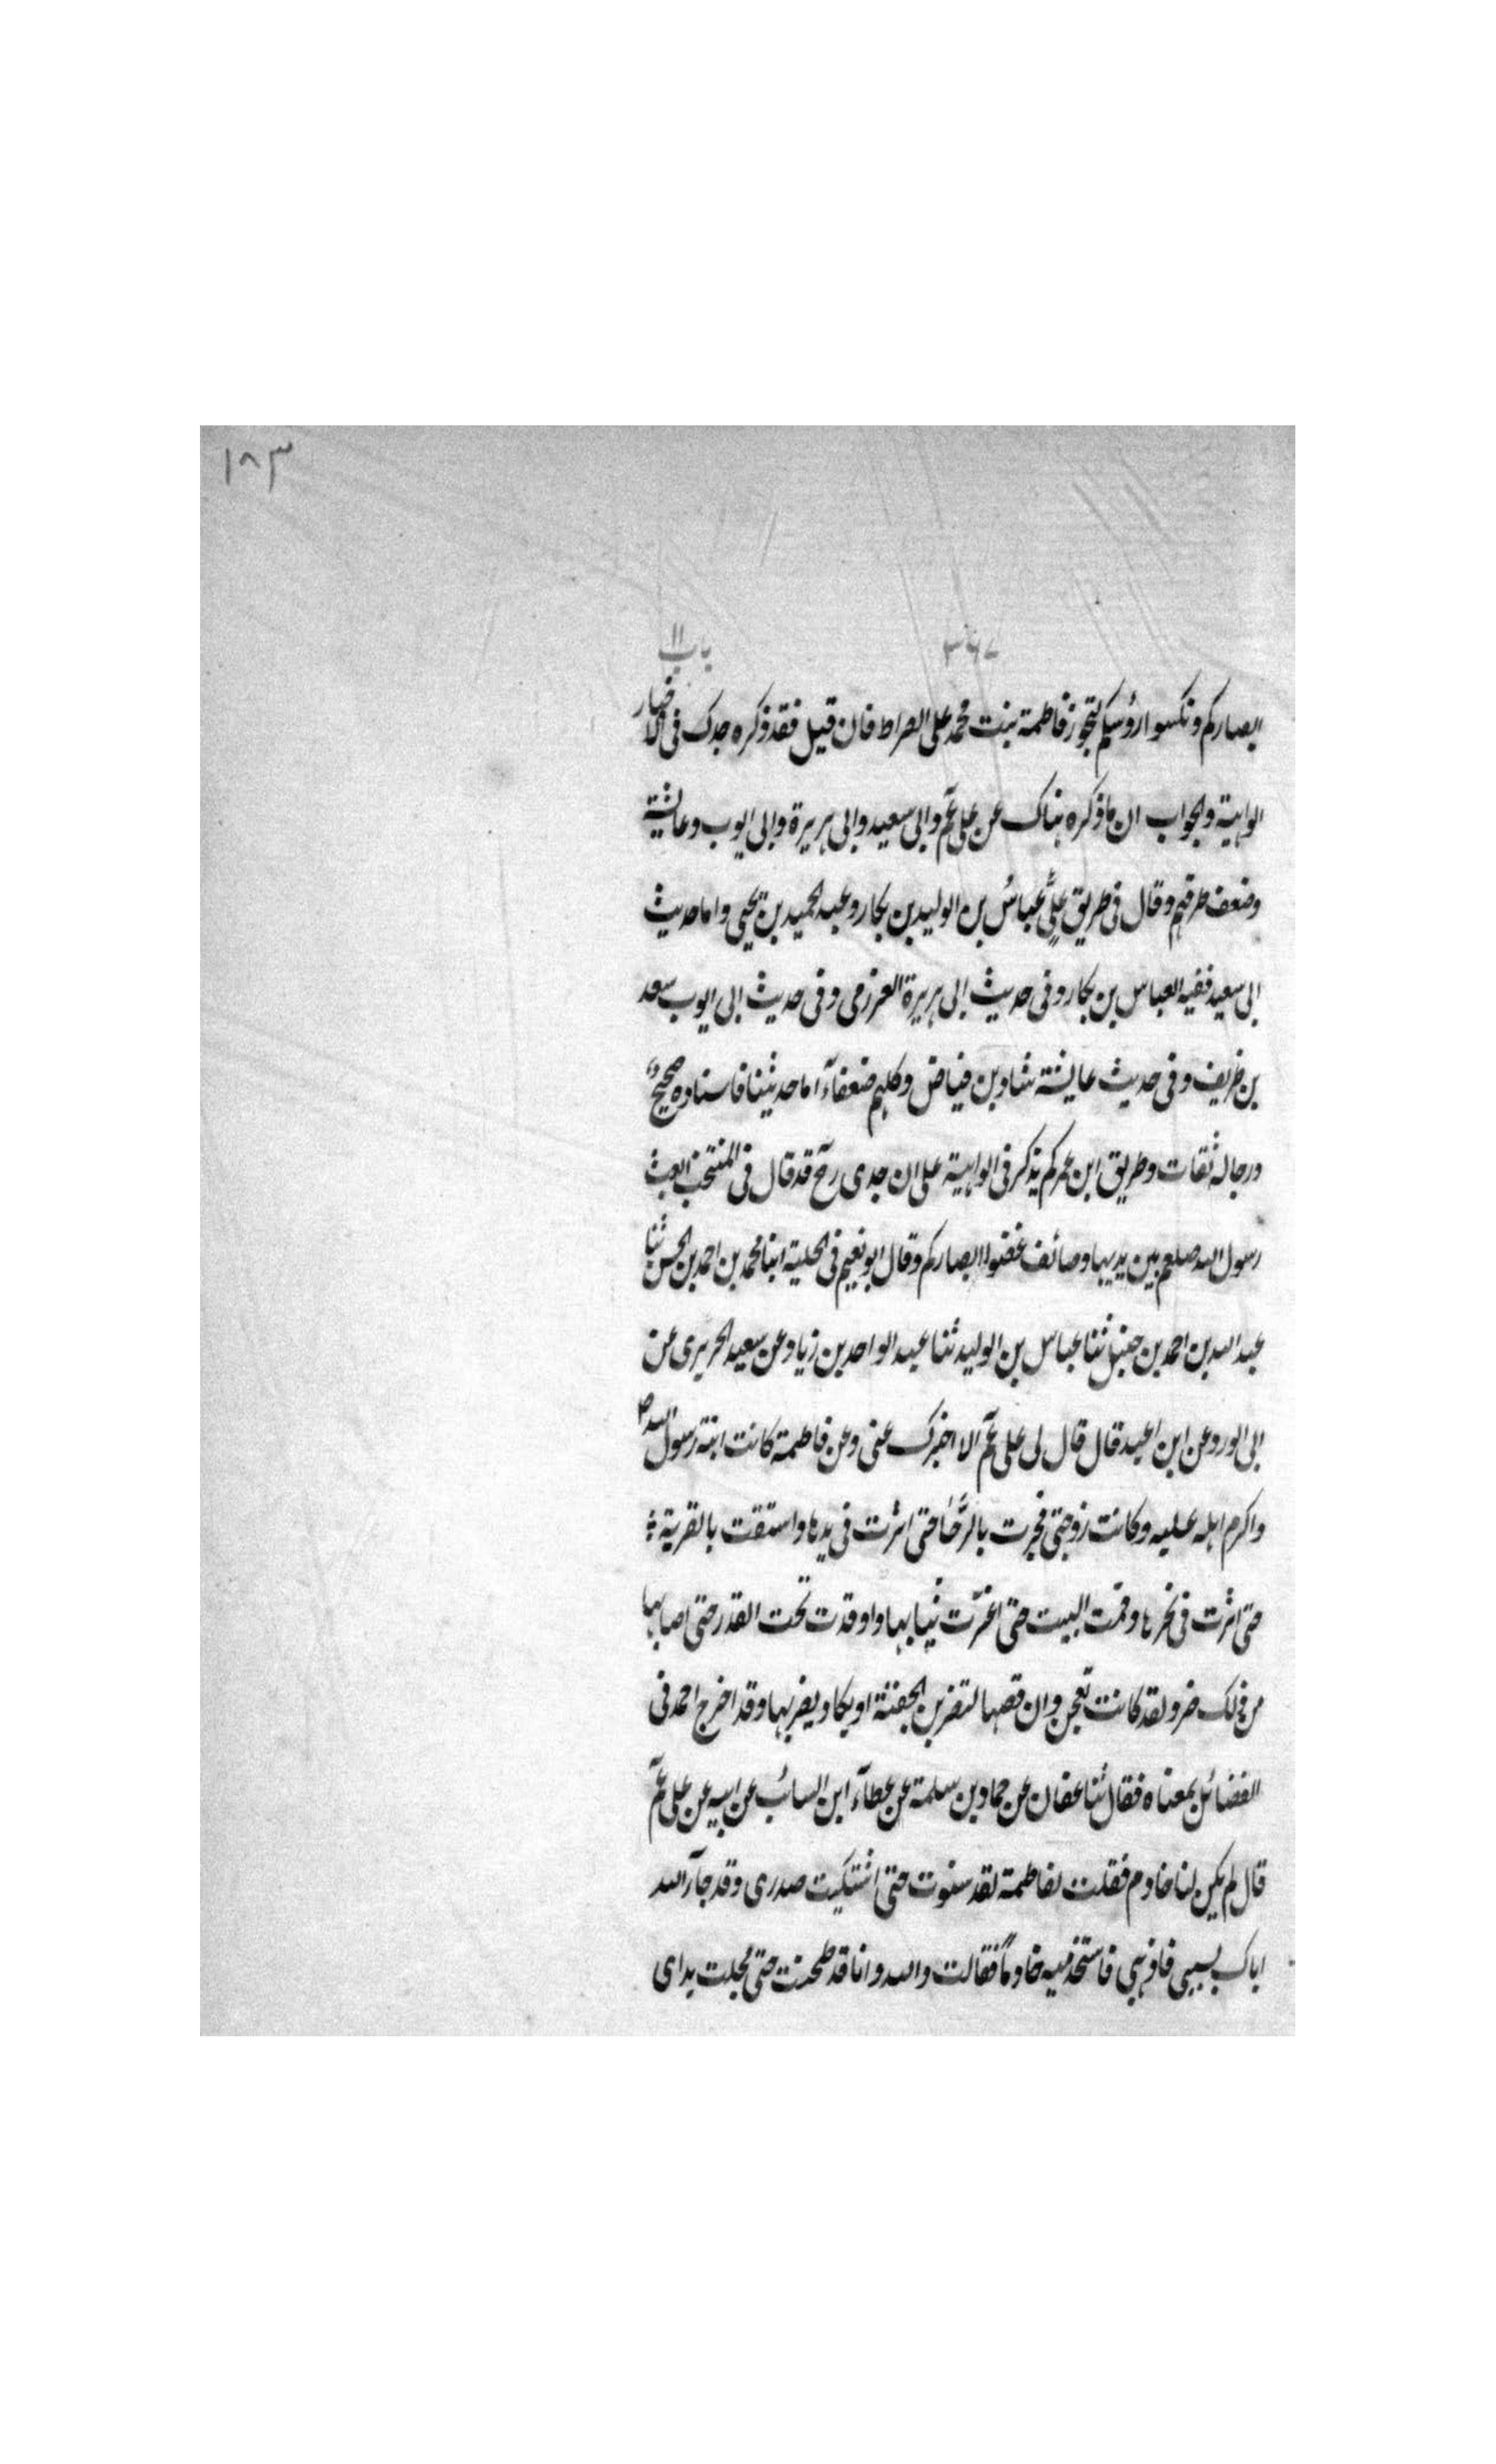 ١٨٣
٣٦٧ باب ١١
ابصاركم ونكسوا رؤسكم لتجوز فاطمة بنت محمد على الصراط فان قيل فقد ذكره جدك فى الاخبار
الواهية والجواب ان ما ذكره هناك عن على عم وابى سعيد وابى هريرة وابى ايوب وعائشة
وضعف طرقهم وقال فى طريق علىٍّ عباسُ بن الوليد بن بكار وعبد الحميد بن يحيى واما حديث
ابى سعيد ففيه العباس بن بكار وفى حديث ابى هريرة العرزمى وفى حديث ابى ايوب سعد
بن ظريف وفى حديث عايشة شاد بن فياض وكلهم ضعفآء اما حديثنا فاسناده صحيح
ورجاله ثقات وطريق ابن عمر لم يذكر فى الواهية على ان جدى رح قد قال فى المنتخب ابعث
رسول الله صلعم بين يديها وصائف غضوا ابصاركم وقال ابو نعيم فى الحلية ابنا محمد بن احمد بن الحسن ثنا
عبد الله بن احمد بن حنبل ثنا عباس بن الوليد ثنا عبد الواحد بن زياد عن سعيد الحريرى عن
ابى الورد عن ابن اعبد قال قال لى على عم الا اخبرك عنى وعن فاطمة كانت ابنة رسول الله ص
واكرم اهله عليه وكانت زوجتى فجرت بالرَّحَا حتى اثرت فى يدها واستقت بالقربة
حتى اثرت فى نحرها وقمت البيت حتى اغبرّت ثيابها واوقدت تحت القدر حتى اصابها
من ذلك ضر ولقد كانت تعجن وان قصها لتضرب الجفنة او يكاد يضربها وقد اخرج احمد فى
الفضائل بمعناه فقال ثنا عفان عن حماد بن سلمة عن عطآء ابن السائب عن ابيه عن على عم
قال لم يكن لنا خادم فقلت لفاطمة لقد سنوت حتى اشتكيت صدرى وقد جآء الله
اباك بسبى فاذهبى فاستخدميه خادمًا فقالت والله وانا قد طحنت حتى مجلت يداى